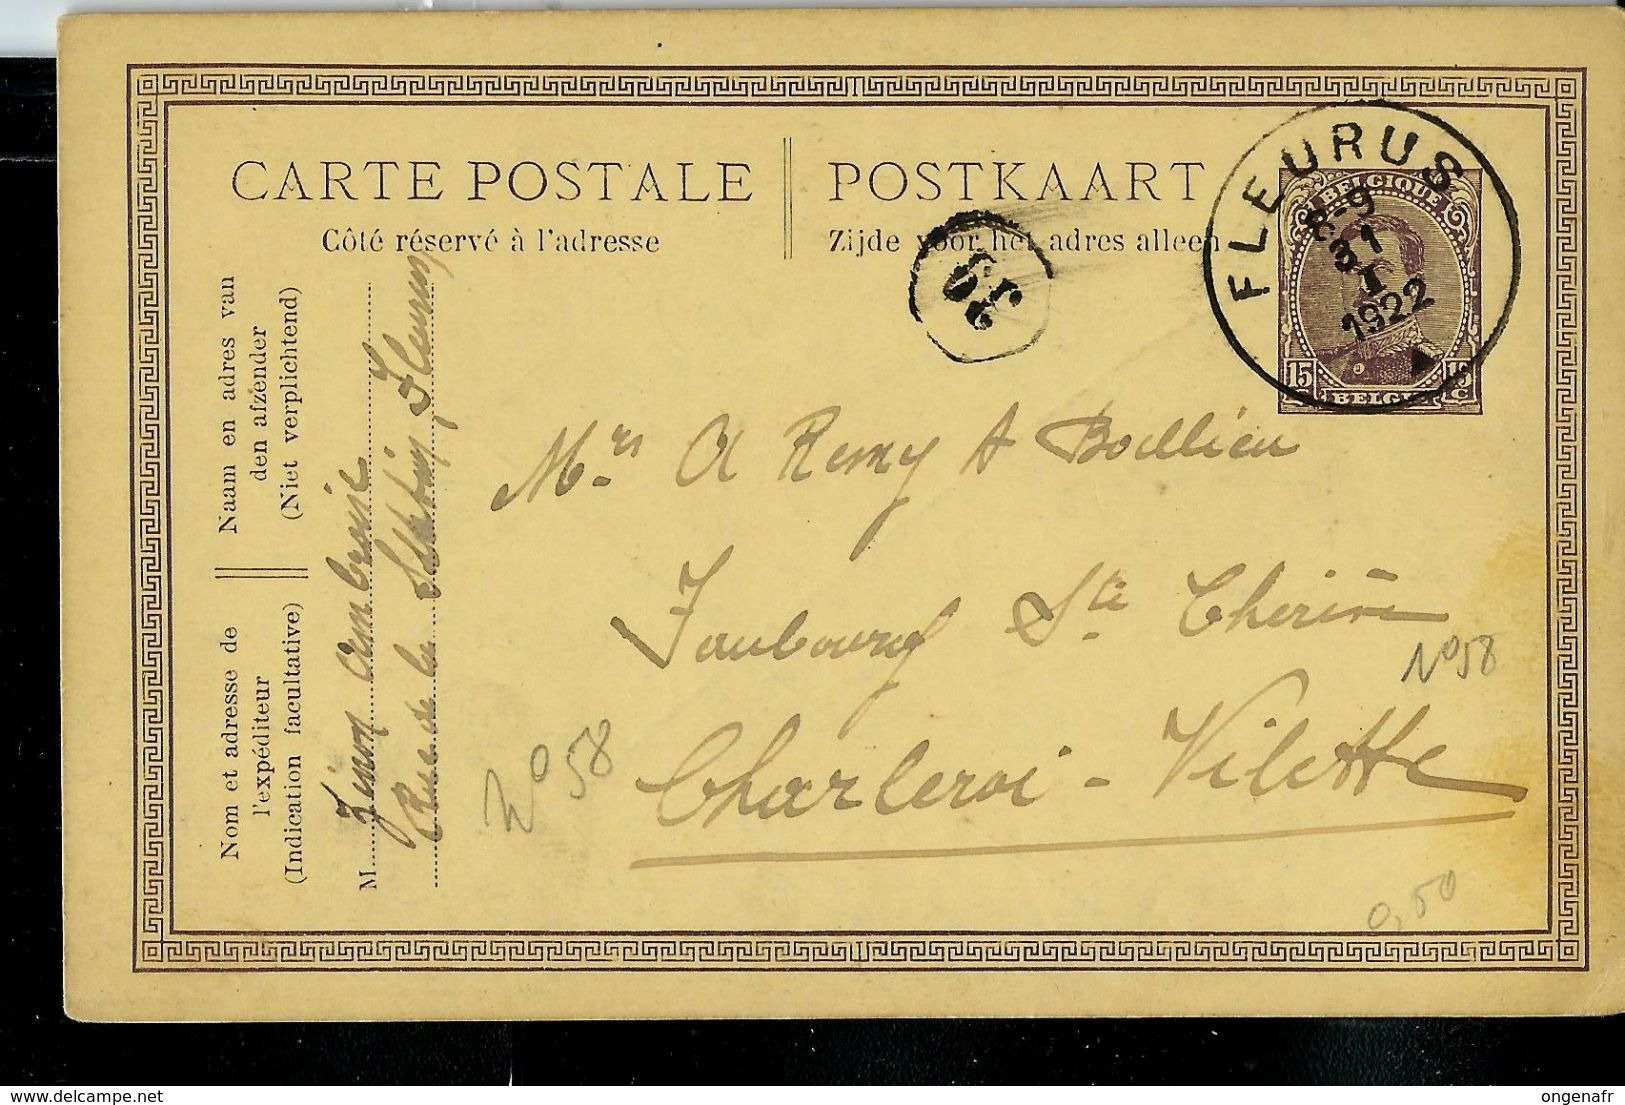 CARTE POSTALE
Côté réservé à l'adresse
POSTKAART
Zijde voor het adres alleen
FLEURUS
8-9
31
I
1922
BELGIQUE
15 C
15 C
BELGIË
Naam en adres van
den afzender
(Niet verplichtend)
Nom et adresse de
l'expéditeur
(Indication facultative)
M. Ambroise
Rue de la Fleurus
Mrs A Remy & Boellieu
Faubourg Ste
N° 58
N° 58
Charleroi - Vilette
0,50
ongenafr